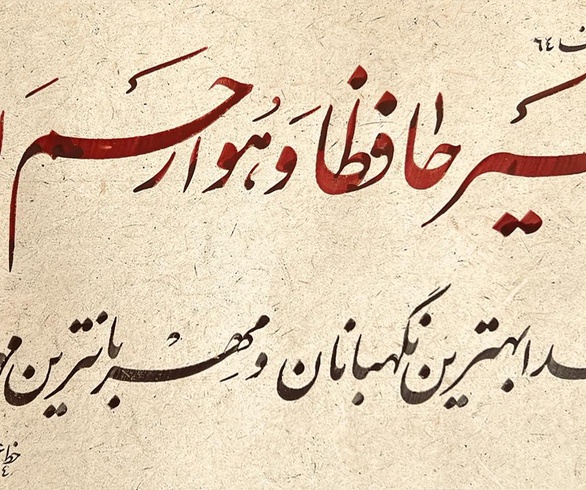 ٦٤
حافظا وهو ارحم
بهترین نگهبانان و مهربانترین
خط